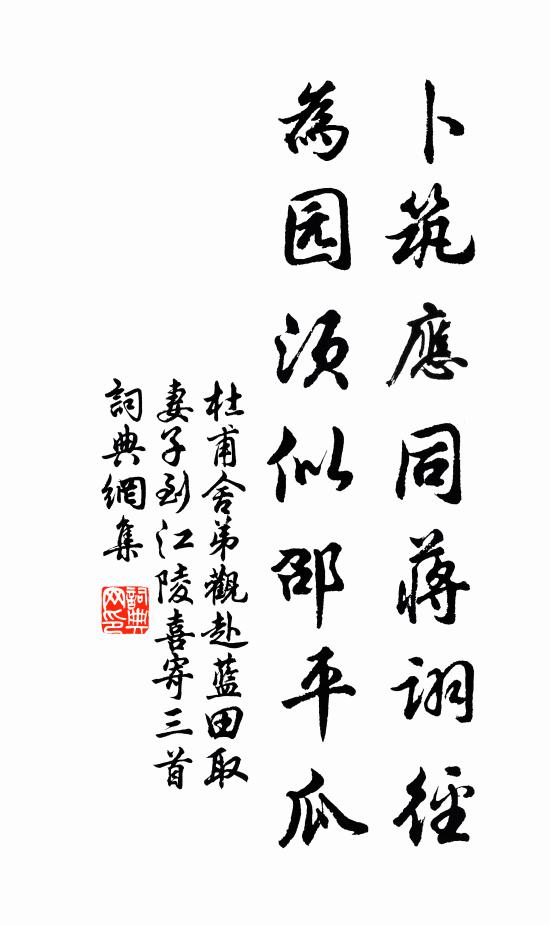 卜筑應同蔣詡徑
為园須似邵平瓜
杜甫舍弟觀赴藍田取
妻子到江陵喜寄三首
詞典網集
詞典
网印